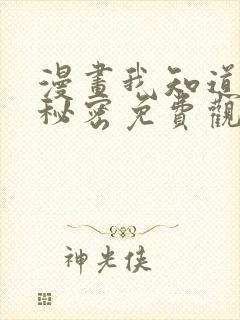 漫畫我知道
秘密免費觀
神光俠